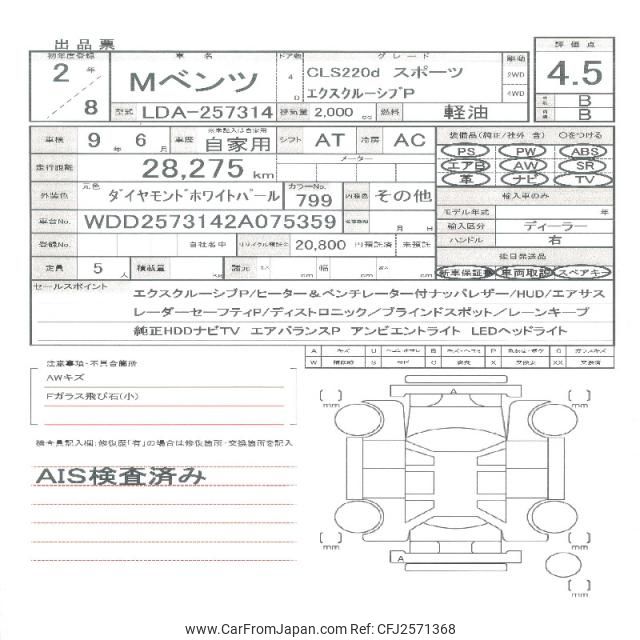 出品票
初年度登録 車名 ドア数 グレード 駆動 評価点
2年 Mベンツ 4 CLS220d スポーツ 2WD 4.5
8 D エクスクルーシブP 4WD B
型式 LDA-257314 排気量 2,000 cc 燃料 軽油 B
車検 9年 6月 車歴 ※未記入は自家用 自家用 シフト AT 冷房 AC 装備品(純正/社外 含) ○をつける
走行距離 28,275 km メーター PS PW ABS
エアB AW SR
革 ナビ TV
外装色 元色 ダイヤモンドホワイトパール カラーNo. 799 内装色 その他 輸入車のみ
モデル年式 年
車台No. WDD2573142A075359 月 日 輸入区分 ディーラー
登録No. 自社名中 リサイクル預託金 20,800 円預託済 未預託 ハンドル 右
定員 5人 積載量 kg 諸元 cm 幅 cm cm 後日発送品
新車保証書 車両取説 スペアキー
セールスポイント
エクスクルーシブP/ヒーター&ベンチレーター付ナッパレザー/HUD/エアサス
レーダーセーフティP/ディストロニック/ブラインドスポット/レーンキープ
純正HDDナビTV エアバランスP アンビエントライト LEDヘッドライト
A キズ U B P G ガラスキズ
W S C X 交換要 XX 交換済
注意事項・不具合箇所
AWキズ
Fガラス飛び石(小)
検査員記入欄:修復歴「有」の場合は修復箇所・交換箇所を記入
AIS検査済み
A
[ ] mm
[ ] mm
[ ] mm
A
[ ] mm
[ ] mm
www.CarFromJapan.com Ref: CFJ2571368